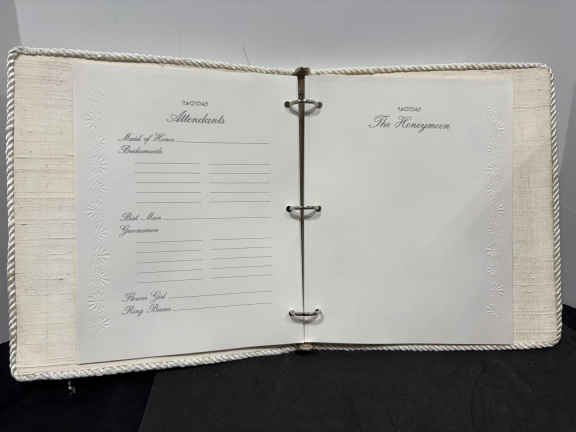 Attendants
Maid of Honor
Bridesmaids
Best Man
Groomsmen
Flower Girl
Ring Bearer
The Honeymoon